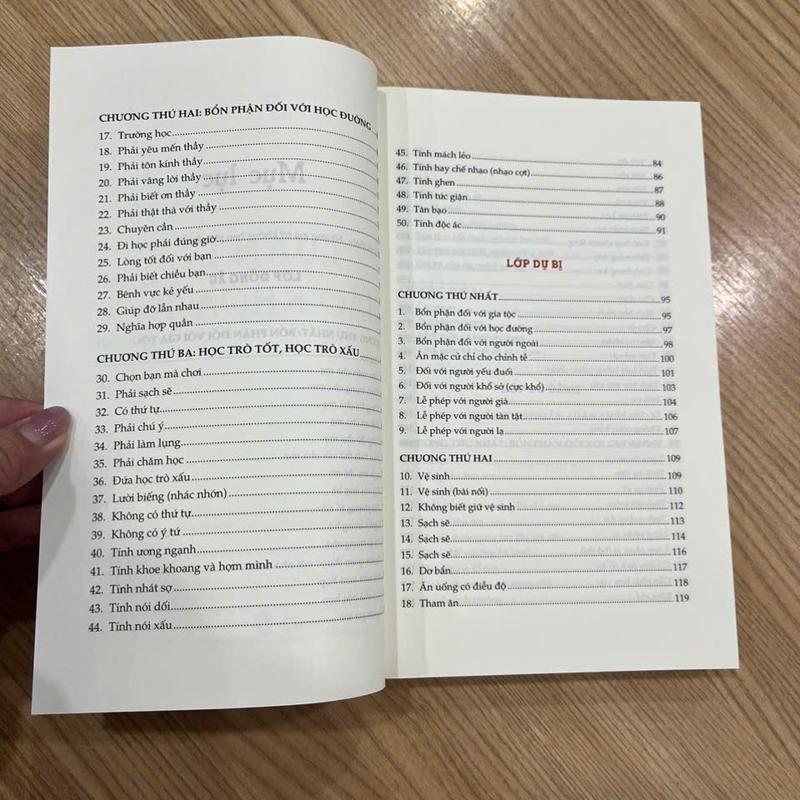 CHƯƠNG THỨ HAI: BỔN PHẬN ĐỐI VỚI HỌC ĐƯỜNG
17. Trường học
18. Phải yêu mến thầy
19. Phải tôn kính thầy
20. Phải vâng lời thầy
21. Phải biết ơn thầy
22. Phải thật thà với thầy
23. Chuyên cần
24. Đi học phải đúng giờ
25. Lòng tốt đối với bạn
26. Phải biết chiều bạn
27. Bênh vực kẻ yếu
28. Giúp đỡ lẫn nhau
29. Nghĩa hợp quần
CHƯƠNG THỨ BA: HỌC TRÒ TỐT, HỌC TRÒ XẤU
30. Chọn bạn mà chơi
31. Phải sạch sẽ
32. Có thứ tự
33. Phải chú ý
34. Phải làm lụng
35. Phải chăm học
36. Đứa học trò xấu
37. Lười biếng (nhác nhớn)
38. Không có thứ tự
39. Không có ý tứ
40. Tính ương ngạnh
41. Tính khoe khoang và hợm mình
42. Tính nhát sợ
43. Tính nói dối
44. Tính nói xấu
45. Tính mách lẻo 84
46. Tính hay chế nhạo (nhạo cợt) 86
47. Tính ghen 87
48. Tính tức giận 88
49. Tàn bạo 90
50. Tính độc ác 91
LỚP DỰ BỊ
CHƯƠNG THỨ NHẤT 95
1. Bổn phận đối với gia tộc 95
2. Bổn phận đối với học đường 97
3. Bổn phận đối với người ngoài 98
4. Ăn mặc cử chỉ cho chỉnh tề 100
5. Đối với người yếu đuối 101
6. Đối với người khổ sở (cực khổ) 103
7. Lễ phép với người già 104
8. Lễ phép với người tàn tật 106
9. Lễ phép với người lạ 107
CHƯƠNG THỨ HAI 109
10. Vệ sinh 109
11. Vệ sinh (bài nối) 110
12. Không biết giữ vệ sinh 112
13. Sạch sẽ 113
14. Sạch sẽ 114
15. Sạch sẽ 116
16. Dơ bẩn 117
17. Ăn uống có điều độ 118
18. Tham ăn 119